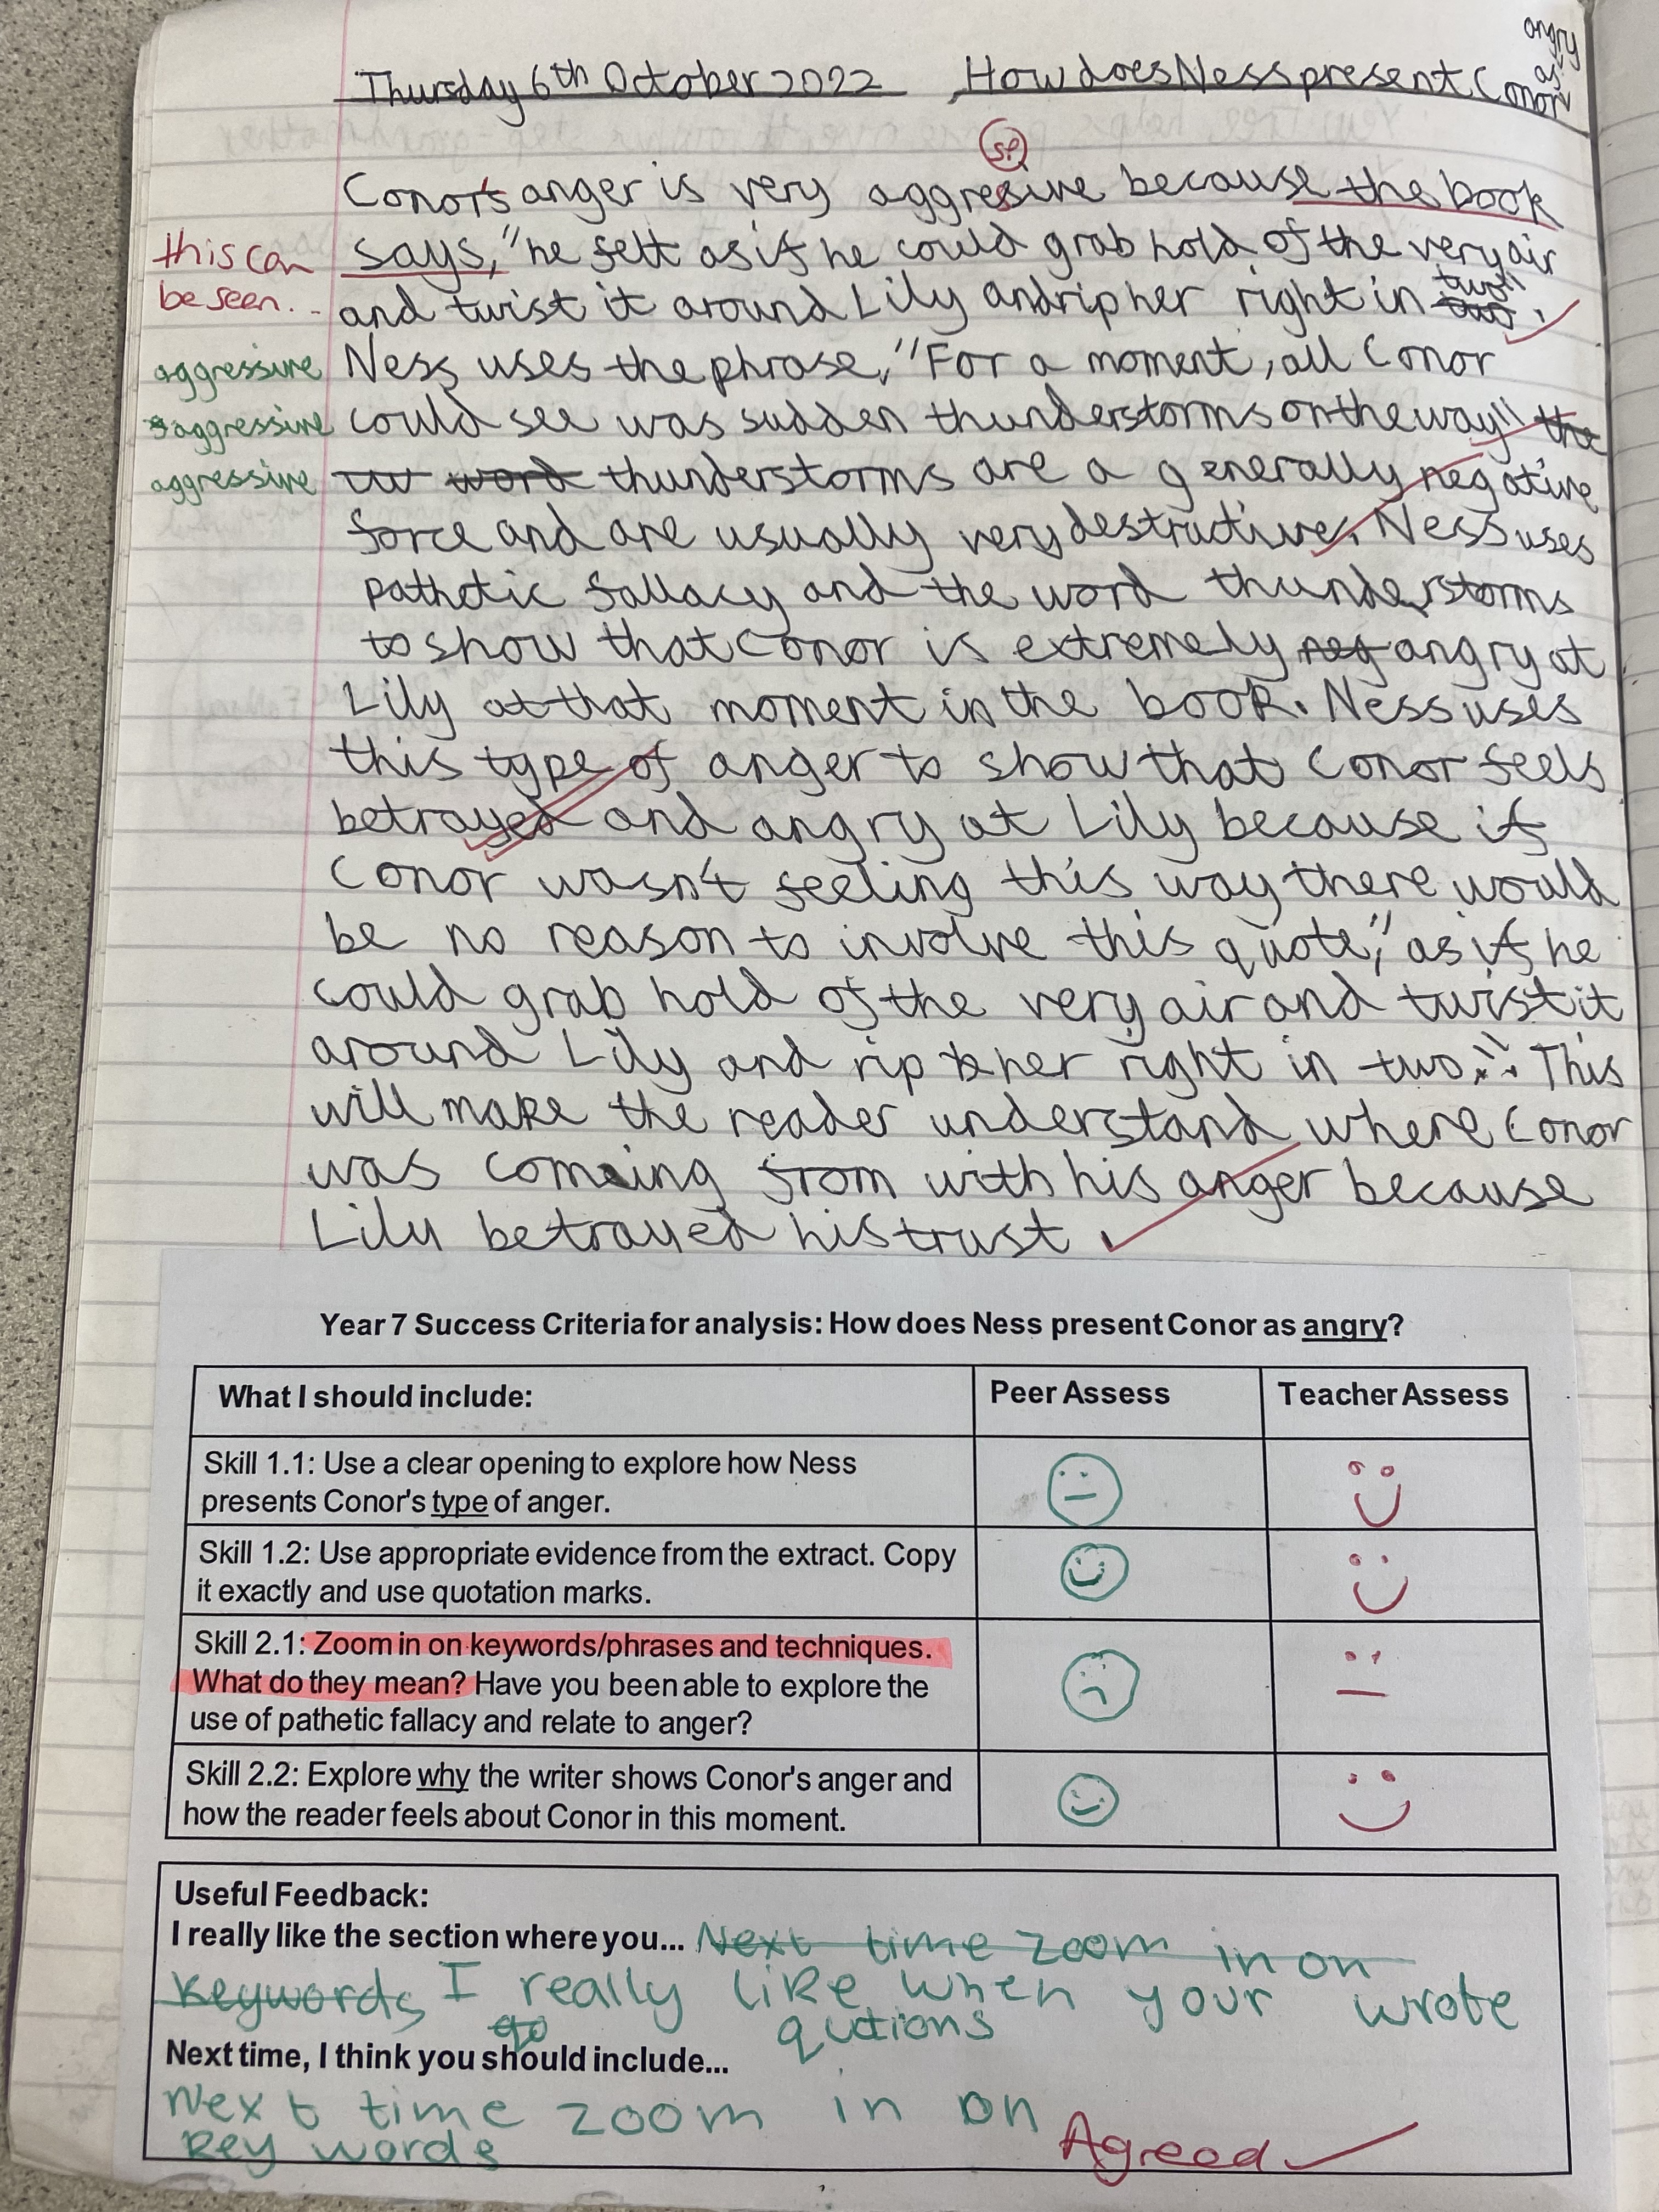 Thursday 6th October 2022 How does Ness present Conor
as
angry
sp
Conor's anger is very aggresive because the book
this can
be seen...
says, "he felt as if he could grab hold of the very air
and twist it around Lily and rip her right in two two".
aggressive
aggressive
aggressive
Ness uses the phrase, "For a moment, all Conor
could see was sudden thunderstorms on the way" the
word thunderstorms are a generally negative
force and are usually very destructive. Ness uses
pathetic fallacy and the word thunderstorms
to show that Conor is extremely neg angry at
Lily at that moment in the book. Ness uses
this type of anger to show that Conor feels
betrayed and angry at Lily because if
Conor wasn't feeling this way there would
be no reason to involve this quote, "as if he
could grab hold of the very air and twist it
around Lily and rip her right in two". This
will make the reader understand where Conor
was coming from with his anger because
Lily betrayed his trust.
Year 7 Success Criteria for analysis: How does Ness present Conor as angry?
What I should include: Peer Assess Teacher Assess
Skill 1.1: Use a clear opening to explore how Ness
presents Conor's type of anger.
Skill 1.2: Use appropriate evidence from the extract. Copy
it exactly and use quotation marks.
Skill 2.1: Zoom in on keywords/phrases and techniques.
What do they mean? Have you been able to explore the
use of pathetic fallacy and relate to anger?
Skill 2.2: Explore why the writer shows Conor's anger and
how the reader feels about Conor in this moment.
Useful Feedback:
I really like the section where you... Next time zoom in on
keywords I really like when your wrote
qutions
Next time, I think you should include...
Next time zoom in on
key words
Agreed